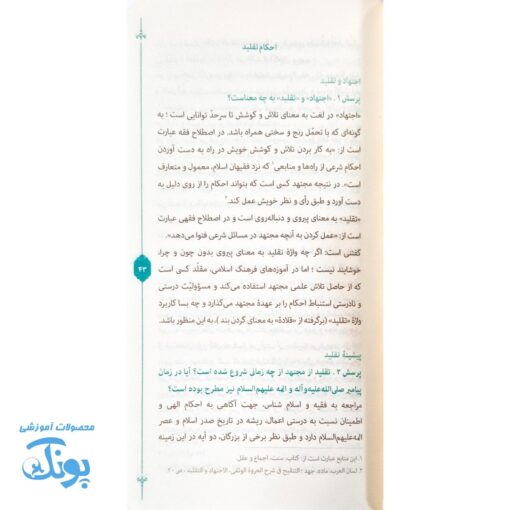 احکام تقلید
اجتهاد و تقلید
پرسش ۱. «اجتهاد» و «تقلید» به چه معناست؟
«اجتهاد» در لغت به معنای تلاش و کوشش تا سرحدّ توانایی است؛ به
گونه‌ای که با تحمّل رنج و سختی همراه باشد. در اصطلاح فقه عبارت
است از: «به کار بردن تلاش و کوشش خویش در راه به دست آوردن
احکام شرعی از راه‌ها و منابعی۱ که نزد فقیهان اسلام، معمول و متعارف
است». در نتیجه مجتهد کسی است که بتواند احکام را از روی دلیل به
دست آورد و طبق رأی و نظر خویش عمل کند.۲
«تقلید» به معنای پیروی و دنباله‌روی است و در اصطلاح فقهی عبارت
است از: «عمل کردن به آنچه مجتهد در مسائل شرعی فتوا می‌دهد».
گفتنی است: اگر چه واژۀ تقلید به معنای پیروی بدون چون و چرا،
خوشایند نیست؛ اما در آموزه‌های فرهنگ اسلامی، مقلّد کسی است
که از حاصل تلاش علمی مجتهد استفاده می‌کند و مسؤولیّت درستی
و نادرستی استنباط احکام را بر عهدۀ مجتهد می‌گذارد و چه بسا کاربرد
واژۀ «تقلید» (برگرفته از «قلادة» به معنای گردن بند)، به این منظور باشد.
۴۳
پیشینۀ تقلید
پرسش ۲. تقلید از مجتهد از چه زمانی شروع شده است؟ آیا در زمان
پیامبر صلی‌الله‌علیه‌وآله و ائمه علیهم‌السلام نیز مطرح بوده است؟
مراجعه به فقیه و اسلام شناس، جهت آگاهی به احکام الهی و
اطمینان نسبت به درستی اعمال، ریشه در تاریخ صدر اسلام و عصر
ائمه‌علیهم‌السلام دارد و طبق نظر برخی از بزرگان، دو آیه در این زمینه
۱. این منابع عبارت است از: کتاب، سنت، اجماع و عقل.
۲. لسان العرب، ماده، جهد؛ التنقیح فی شرح العروة الوثقی، الاجتهاد و التقلید، ص ۲۰.
محصولات آموزشی
پونک